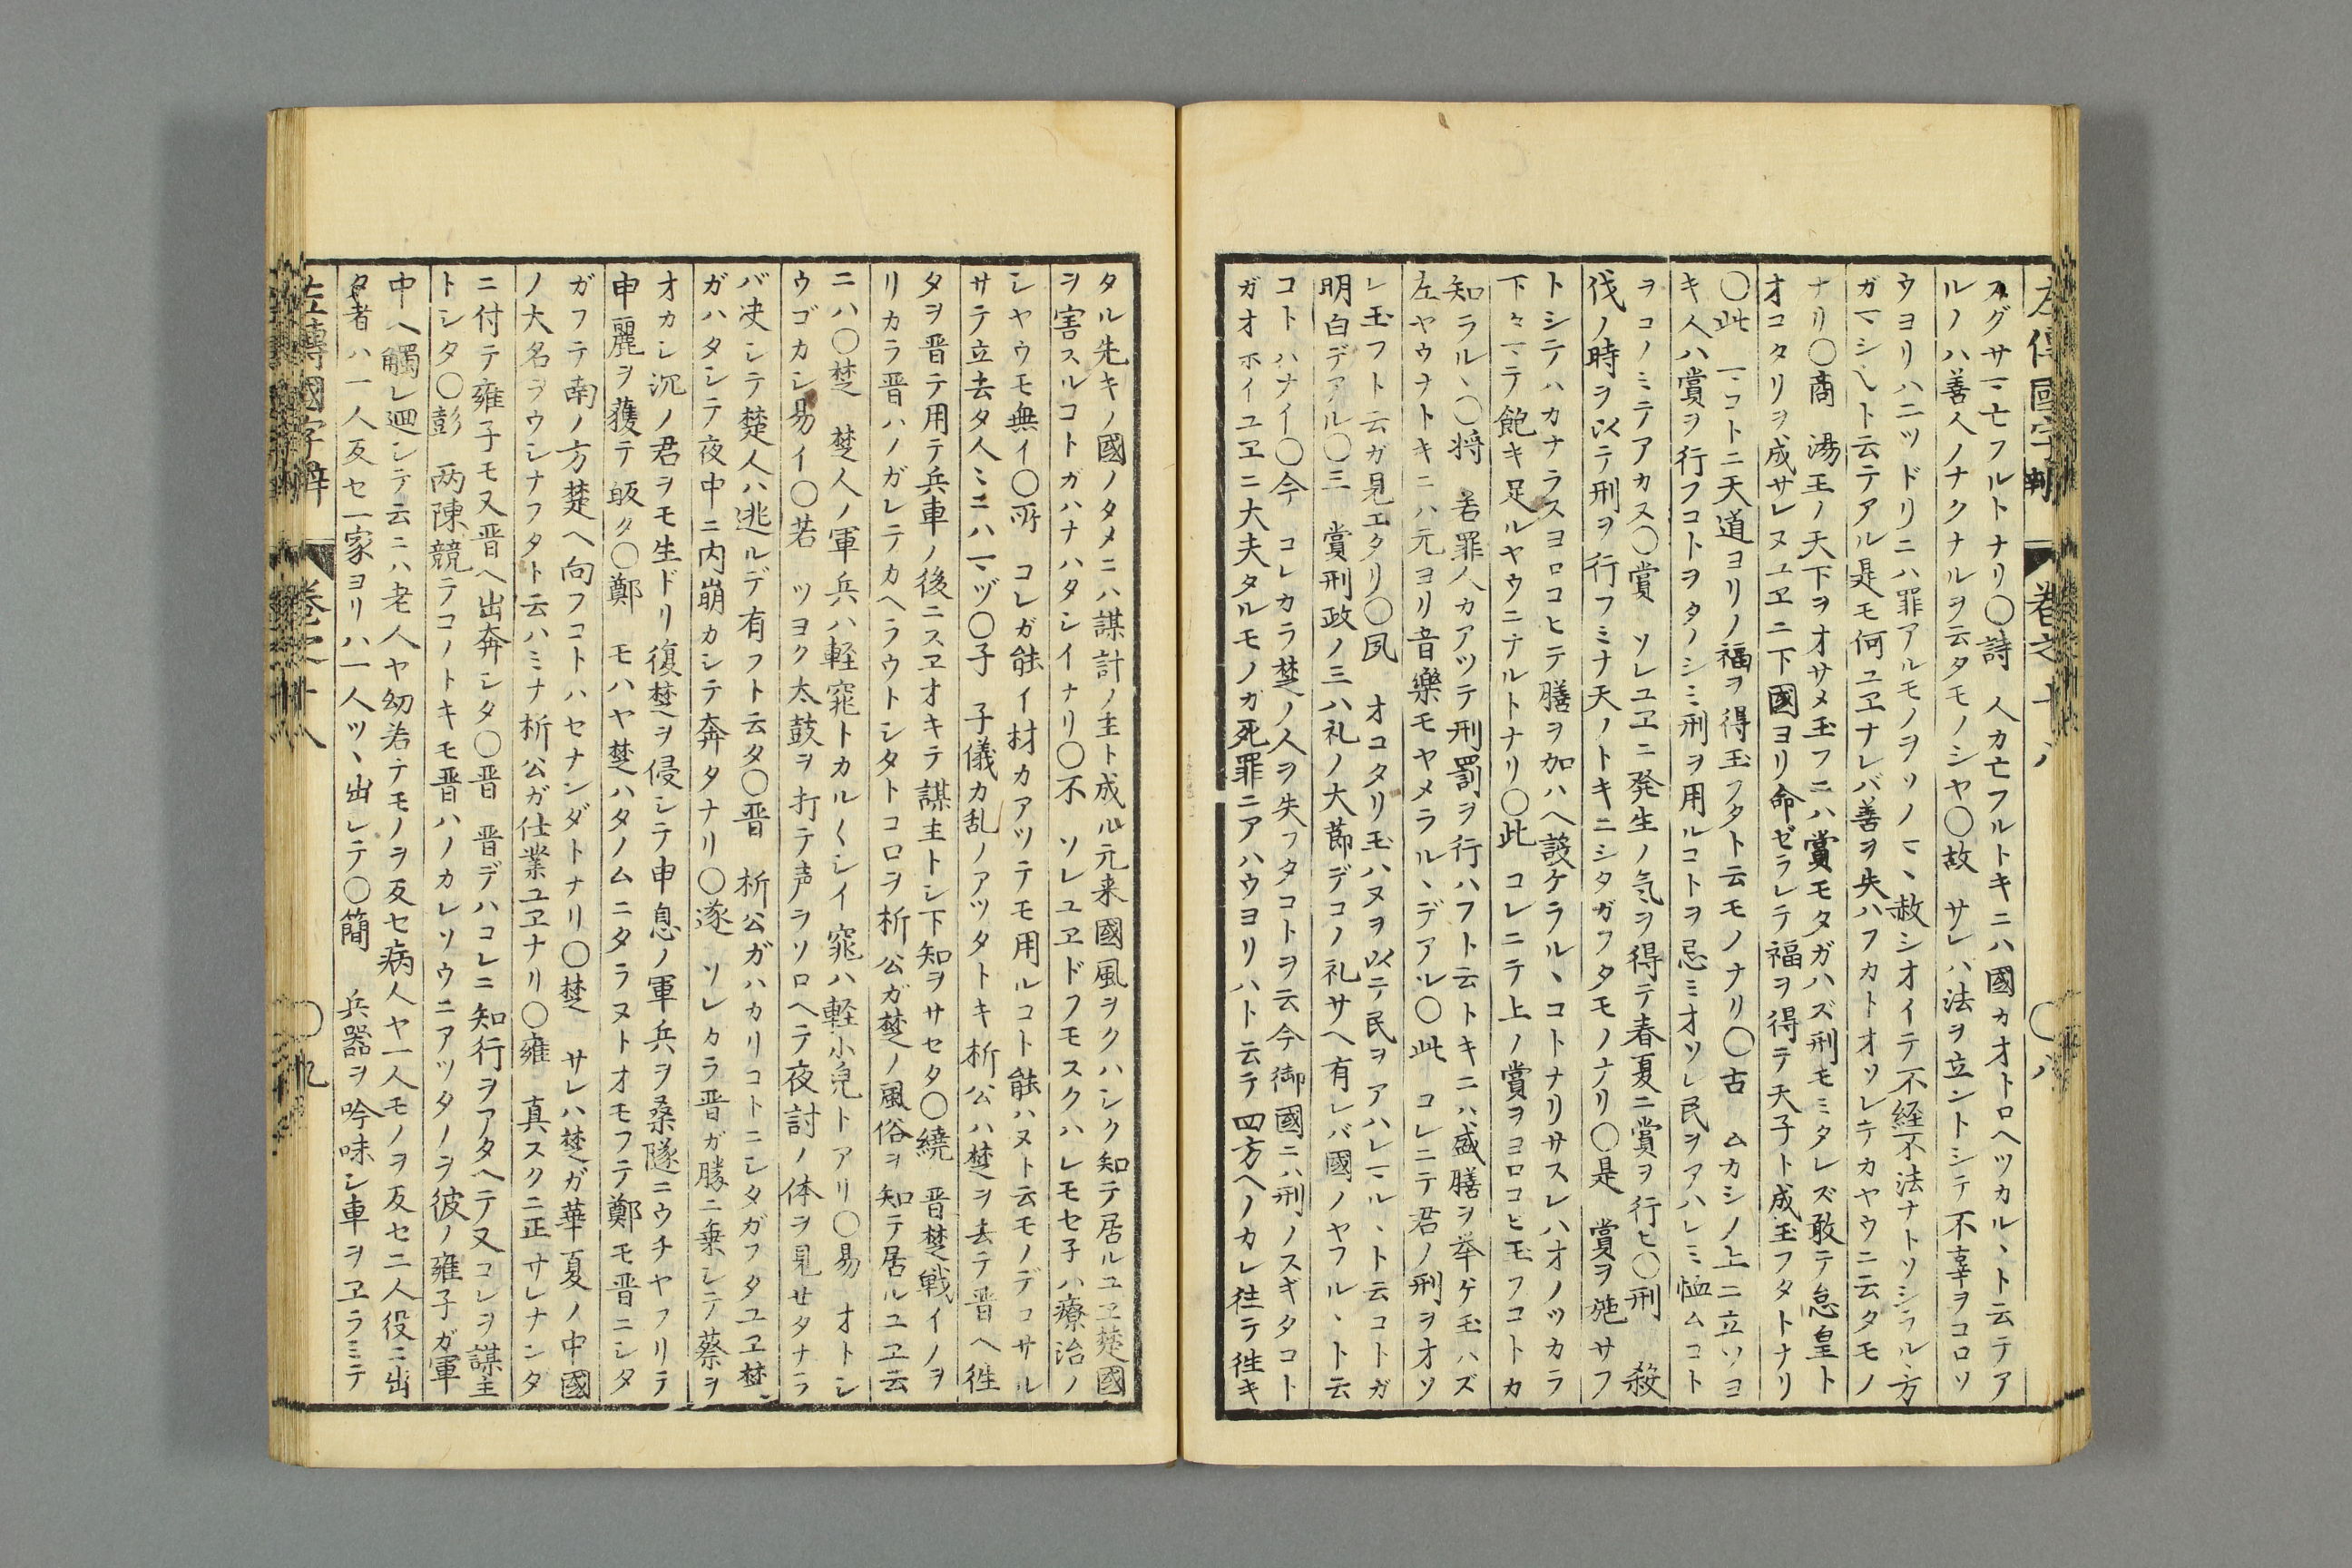 左傳國字觧 卷之十八 〇八
スグサマ亡フルトナリ〇詩 人カ亡フルトキニハ國カオトロヘツカルヽト云テア
ルノハ善人ノナクナルヲ云タモノシヤ〇故 サレハ法ヲ立ントシテ不辜ヲコロソ
ウヨリハ二ツドリニハ罪アルモノヲソノマヽ赦シオイテ不経不法ナトソシラルヽ方
ガマシヂヤト云テアル是モ何ユヱナレバ善ヲ失ハフカトオソレテカヤウニ云タモノ
ナリ〇商 湯王ノ天下ヲオサメ玉フニハ賞モタガハズ刑モミタレズ敢テ怠皇ト
オコタリヲ成サレヌユヱニ下國ヨリ命ゼラレテ福ヲ得テ天子ト成玉フタトナリ
〇此 マコトニ天道ヨリノ福ヲ得玉フタト云モノナリ〇古 ムカシノ上ニ立ツヨ
キ人ハ賞ヲ行フコトヲタノシミ刑ヲ用ルコトヲ忌ミオソレ民ヲアハレミ恤ムコト
ヲコノミテアカス〇賞 ソレユヱニ発生ノ気ヲ得テ春夏ニ賞ヲ行ヒ〇刑 殺
伐ノ時ヲ以テ刑ヲ行フミナ天ノトキニシタガフタモノナリ〇是 賞ヲ施サフ
トシテハカナラスヨロコヒテ膳ヲ加ハヘ設ケラルヽコトナリサスレハオノツカラ
下々マテ飽キ足ルヤウニナルトナリ〇此 コレニテ上ノ賞ヲヨロコヒ玉フコトカ
知ラルヽ〇将 若罪人カアツテ刑罰ヲ行ハフト云トキニハ盛膳ヲ挙ケ玉ハズ
左ヤウナトキニハ元ヨリ音樂モヤメラルヽデアル〇此 コレニテ君ノ刑ヲオソ
レ玉フト云ガ見エタリ〇夙 オコタリ玉ハヌヲ以テ民ヲアハレマルヽト云コトガ
明白デアル〇三 賞刑政ノ三ハ礼ノ大節デコノ礼サヘ有レバ國ノヤフルヽト云
コトハナイ〇今 コレカラ楚ノ人ヲ失フタコトヲ云今御國ニハ刑ノスギタコト
ガオホイユヱニ大夫タルモノガ死罪ニアハウヨリハト云テ四方ヘノカレ徃テ徃キ
タル先キノ國ノタメニハ謀計ノ主ト成ル元来國風ヲクハシク知テ居ルユヱ楚國
ヲ害スルコトガハナハタシイナリ〇不 ソレユヱドフモスクハレモセ子ハ療治ノ
シヤウモ無イ〇所 コレガ能イ材カアツテモ用ルコト能ハヌト云モノデコサル
サテ立去タ人ミニハマヅ〇子 子儀カ乱ノアツタトキ析公ハ楚ヲ去テ晋ヘ徃
タヲ晋テ用テ兵車ノ後ニスヱオキテ謀主トシ下知ヲサセタ〇繞 晋楚戦イノヲ
リカラ晋ハノガレテカヘラウトシタトコロヲ析公ガ楚ノ風俗ヲ知テ居ルユヱ云
ニハ〇楚 楚人ノ軍兵ハ軽窕トカル〱シイ窕ハ軽小皃トアリ〇易 オトシ
ウゴカシ易イ〇若 ツヨク太鼓ヲ打テ声ヲソロヘテ夜討ノ体ヲ見せタナラ
バ决シテ楚人ハ逃ルデ有フト云タ〇晋 析公ガハカリコトニシタガフタユヱ楚
ガハタシテ夜中ニ内崩カシテ奔タナリ〇遂 ソレカラ晋ガ勝ニ乗シテ蔡ヲ
オカシ沉ノ君ヲモ生ドリ復楚ヲ侵シテ申息ノ軍兵ヲ桑隧ニウチヤフリテ
申麗ヲ獲テ皈ク〇鄭 モハヤ楚ハタノムニタラヌトオモフテ鄭モ晋ニシタ
ガフテ南ノ方楚ヘ向フコトハセナンダトナリ〇楚 サレハ楚ガ華夏ノ中國
ノ大名ヲウシナフタト云ハミナ析公ガ仕業ユヱナリ〇雍 真スクニ正サレナンタ
ニ付テ雍子モ又晋ヘ出奔シタ〇晋 晋デハコレニ知行ヲアタヘテ又コレヲ謀主
トシタ〇彭 两陳競テコノトキモ晋ハノカレソウニアツタノヲ彼ノ雍子ガ軍
中ヘ觸レ廻シテ云ニハ老人ヤ幼若ナモノヲ反セ病人ヤ一人モノヲ反セ二人役ニ出
タ者ハ一人反セ一家ヨリハ一人ツヽ出レテ〇簡 兵器ヲ吟味シ車ヲヱラミテ
左傳國字觧 卷之十八 〇九